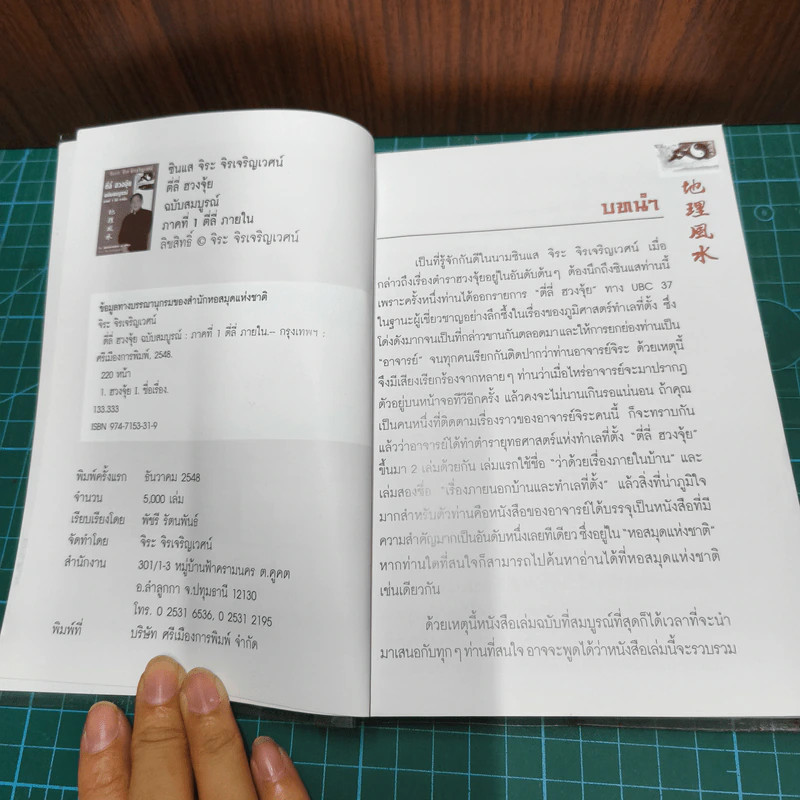 ซินแส จิระ จิรเจริญเวศน์
ตี่ลี่ ฮวงจุ้ย
ฉบับสมบูรณ์
ภาคที่ 1 ตี่ลี่ ภายใน
ลิขสิทธิ์ © จิระ จิรเจริญเวศน์
ข้อมูลทางบรรณานุกรมของสำนักหอสมุดแห่งชาติ
จิระ จิรเจริญเวศน์
ตี่ลี่ ฮวงจุ้ย ฉบับสมบูรณ์ : ภาคที่ 1 ตี่ลี่ ภายใน.-- กรุงเทพฯ :
ศรีเมืองการพิมพ์, 2548.
220 หน้า
1. ฮวงจุ้ย I. ชื่อเรื่อง.
133.333
ISBN 974-7153-31-9
พิมพ์ครั้งแรก ธันวาคม 2548
จำนวน 5,000 เล่ม
เรียบเรียงโดย พัชรี รัตนพันธ์
จัดทำโดย จิระ จิรเจริญเวศน์
สำนักงาน 301/1-3 หมู่บ้านฟ้าครามนคร ต.คูคต
อ.ลำลูกกา จ.ปทุมธานี 12130
โทร. 0 2531 6536, 0 2531 2195
พิมพ์ที่ บริษัท ศรีเมืองการพิมพ์ จำกัด
地理風水
บทนำ
เป็นที่รู้จักกันดีในนามซินแส จิระ จิรเจริญเวศน์ เมื่อ
กล่าวถึงเรื่องตำราฮวงจุ้ยอยู่ในอันดับต้นๆ ต้องนึกถึงซินแสท่านนี้
เพราะครั้งหนึ่งท่านได้ออกรายการ "ตี่ลี่ ฮวงจุ้ย" ทาง UBC 37
ในฐานะผู้เชี่ยวชาญอย่างลึกซึ้งในเรื่องของภูมิศาสตร์ทำเลที่ตั้ง ซึ่ง
โด่งดังมากจนเป็นที่กล่าวขานกันตลอดมาและให้การยกย่องท่านเป็น
"อาจารย์" จนทุกคนเรียกกันติดปากว่าท่านอาจารย์จิระ ด้วยเหตุนี้
จึงมีเสียงเรียกร้องจากหลายๆ ท่านว่าเมื่อไหร่อาจารย์จะมาปรากฏ
ตัวอยู่บนหน้าจอทีวีอีกครั้ง แล้วคงจะไม่นานเกินรอแน่นอน ถ้าคุณ
เป็นคนหนึ่งที่ติดตามเรื่องราวของอาจารย์จิระคนนี้ ก็จะทราบกัน
แล้วว่าอาจารย์ได้ทำตำรายุทธศาสตร์แห่งทำเลที่ตั้ง "ตี่ลี่ ฮวงจุ้ย"
ขึ้นมา 2 เล่มด้วยกัน เล่มแรกใช้ชื่อ "ว่าด้วยเรื่องภายในบ้าน" และ
เล่มสองชื่อ "เรื่องภายนอกบ้านและทำเลที่ตั้ง" แล้วสิ่งที่น่าภูมิใจ
มากสำหรับตัวท่านคือหนังสือของอาจารย์ได้บรรจุเป็นหนังสือที่มี
ความสำคัญมากเป็นอันดับหนึ่งเลยทีเดียว ซึ่งอยู่ใน "หอสมุดแห่งชาติ"
หากท่านใดที่สนใจก็สามารถไปค้นหาอ่านได้ที่หอสมุดแห่งชาติ
เช่นเดียวกัน
ด้วยเหตุนี้หนังสือเล่มฉบับที่สมบูรณ์ที่สุดก็ได้เวลาที่จะนำ
มาเสนอกับทุกๆ ท่านที่สนใจ อาจจะพูดได้ว่าหนังสือเล่มนี้จะรวบรวม